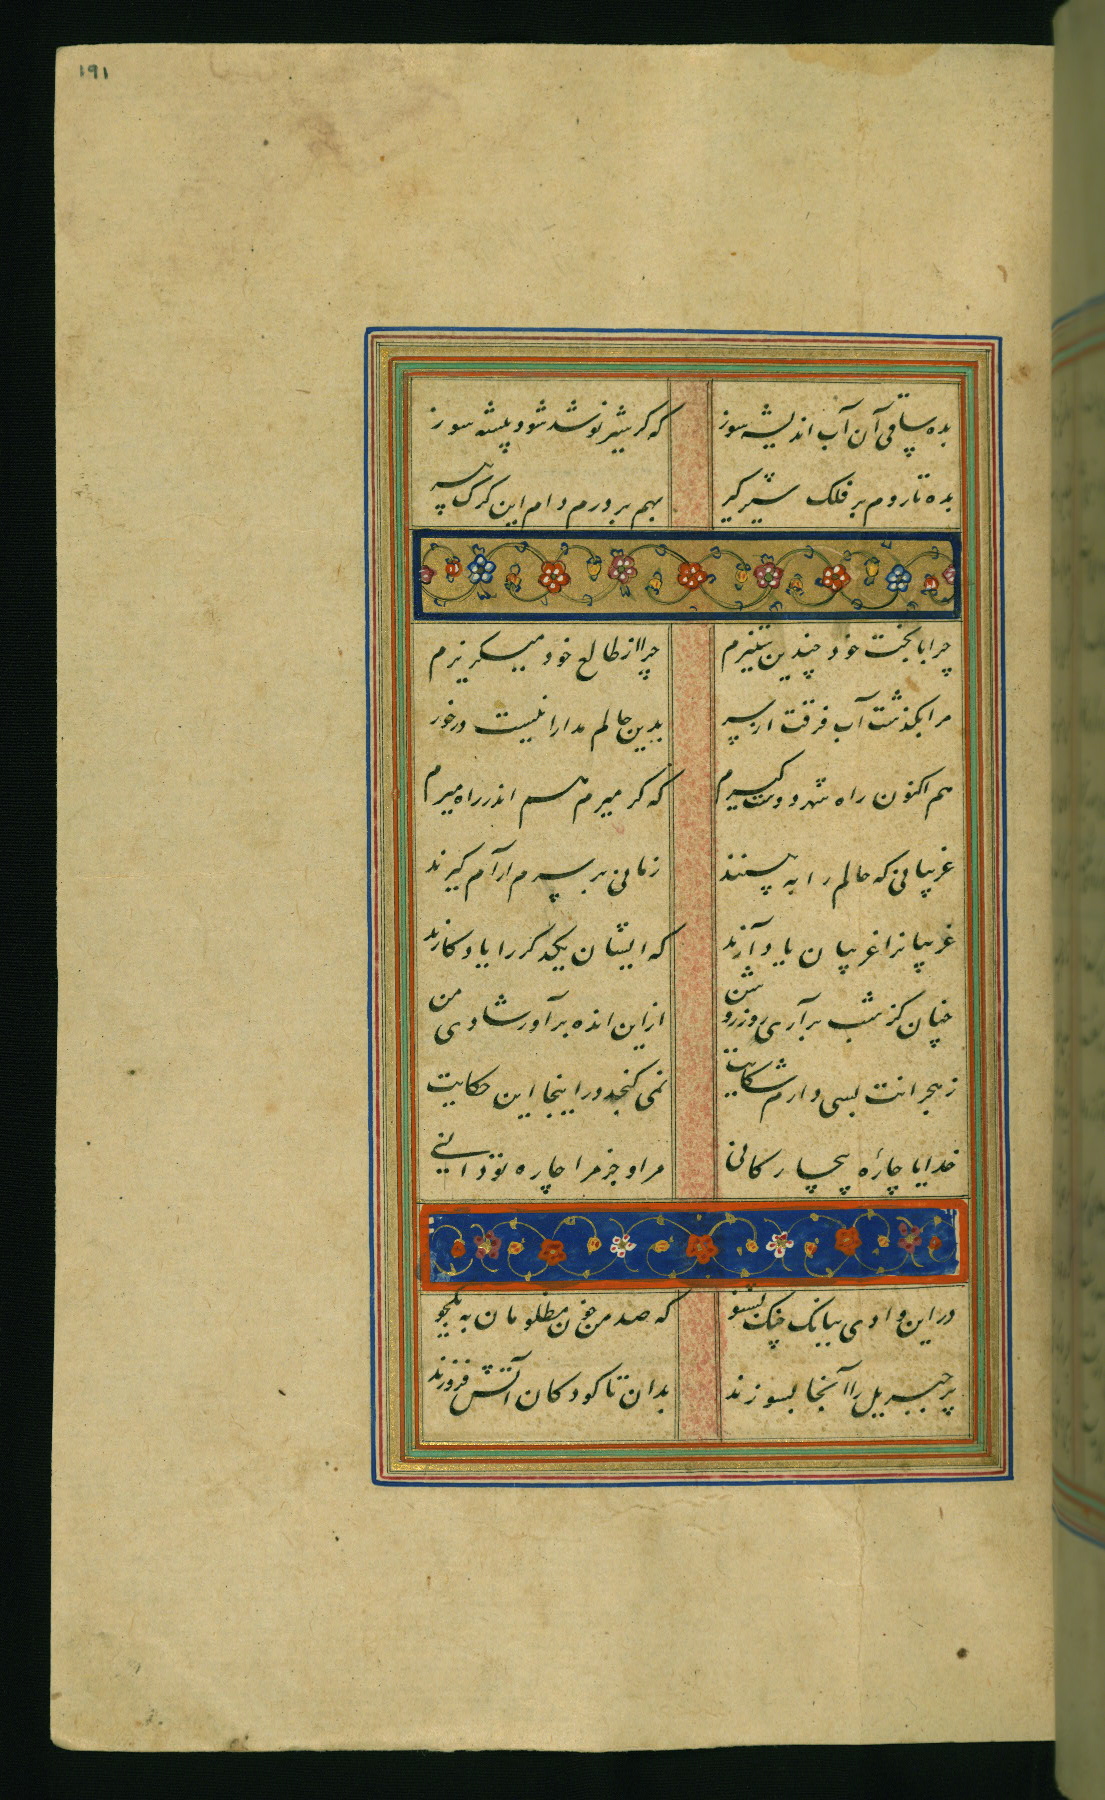 ۱۹۱
بده ساقی آن آب اندیشه سوز که کر شیر نوشد شود پیشه سوز
بده تا روم بر فلک شیر کیر بهم بر درم دام این کرک پیر
چرا با بخت خود چندین ستیزم چرا از طالع خود میکریزم
مرا بکذشت آب فرقت از سر بدین حالم مدارا نیست درخور
هم اکنون راه شهر دوست کیرم که کر میرم هم اندر راه میرم
غریبانی که حالم را به بینند زمانی بر سرم آرام کیرند
غریبانرا غریبان یاد آرند که ایشان یکدکر را یادکارند
چنان کز شب برآری روز روشن ازین انده برآور شادی من
ز هجرانت بسی دارم شکایت نمی کنجد در اینجا این حکایت
خدایا چارهٔ بیچارکانی مرا و جز مرا چاره تو دانی
در این وادی ببانک چنک بشنو که صد من خون مظلومان به یکجو
پر جبریل را آنجا بسوزند بدان تا کودکان آتش فروزند